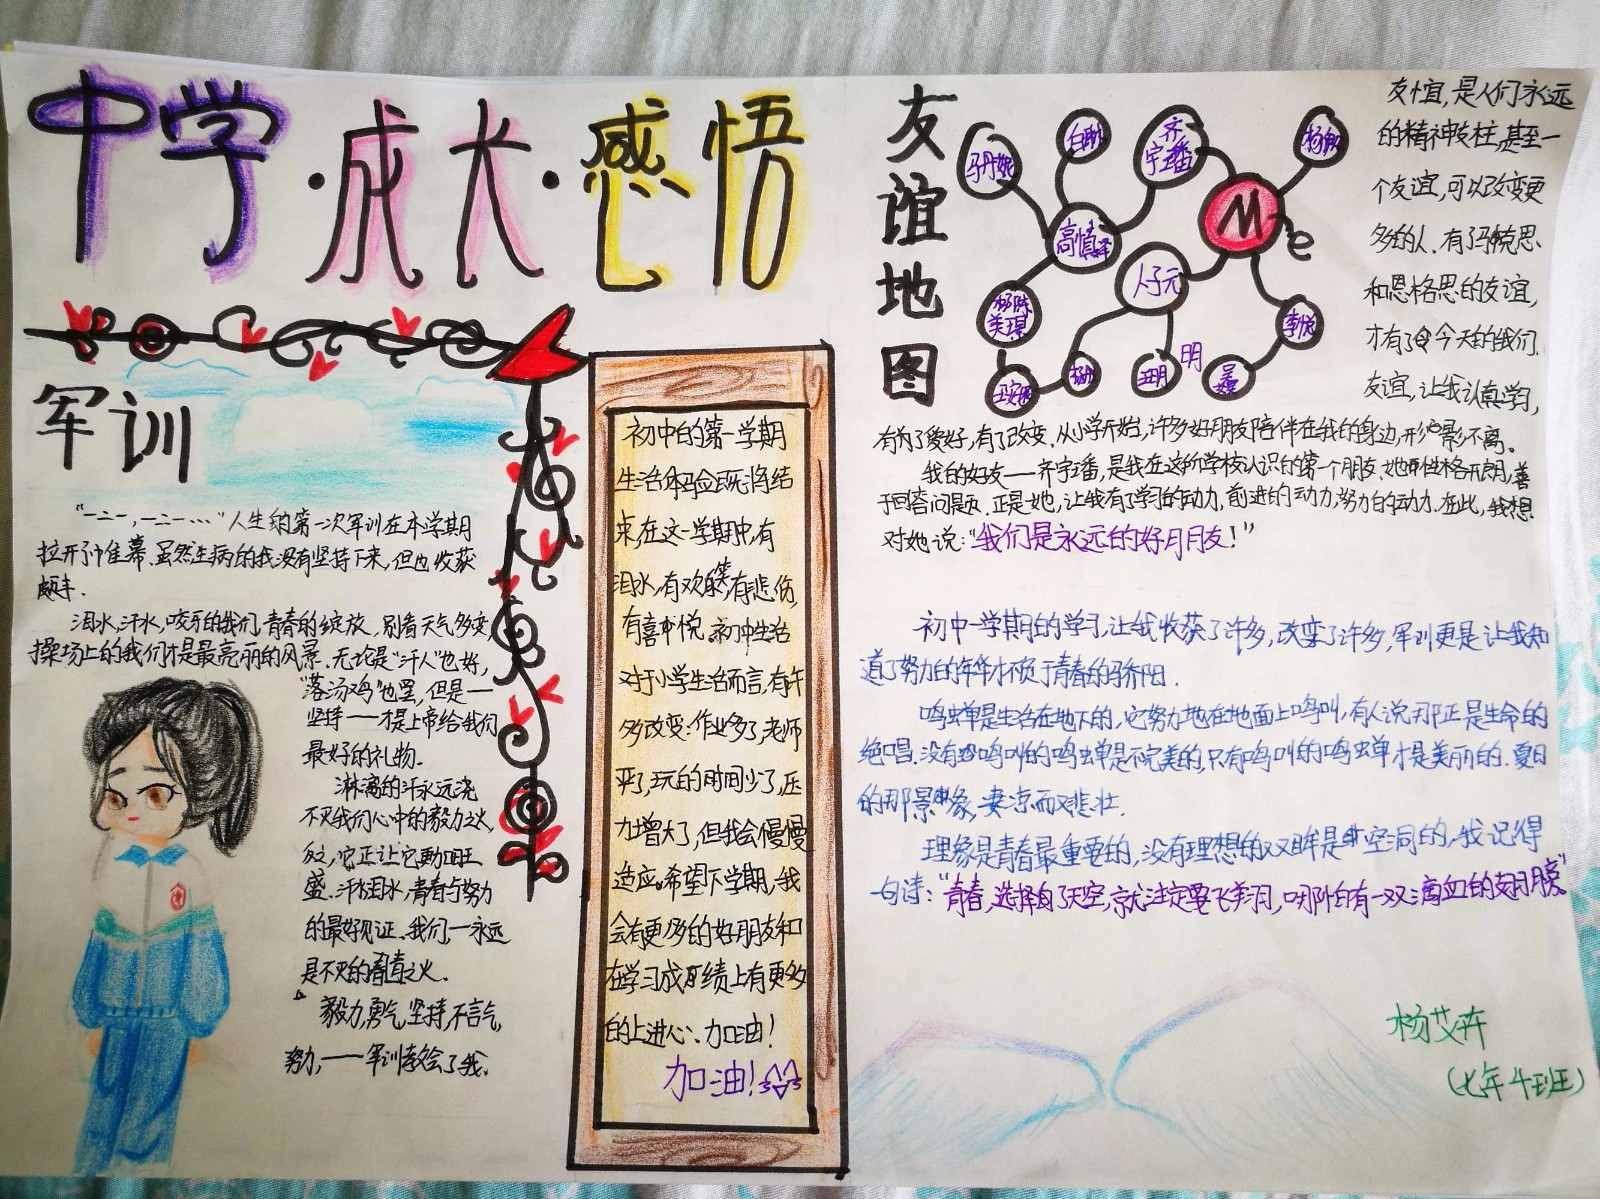 中学·成长·感悟
军训
"一二一,一二一…"人生的第一次军训在本学期
拉开了帷幕.虽然生病的我没有坚持下来,但也收获
颇丰.
泪水,汗水,咬牙的我们,青春的绽放,别看天气多变,
操场上的我们才是最亮丽的风景.无论是"汗人"也好,
"落汤鸡"也罢,但是一
坚持——才是上帝给我们
最好的礼物.
淋漓的汗永远浇
不灭我们心中的毅力之火,
反之,它正让它更加旺
盛.汗水泪水,青春与努力
的最好见证.我们,一永远
是不灭的青春之火.
毅力,勇气,坚持,不言气,
努力,——军训教会了我.
初中的第一学期
生活体验既将结
束,在这一学期中,有
泪水,有欢笑,有悲伤,
有喜悦.初中生活
对于小学生活而言,有许
多改变:作业多了,老师
严了,玩的时间少了,压
力增大了,但我会慢慢
适应.希望下学期,我
会有更多的好朋友和
在学习成绩上有更多
的上进心、加油!
加油!
友谊地图
马丹妮
齐宇璠
高慎泽
Me
李悦
明
友情,是人们永远
的精神支柱,甚至一
个友谊,可以改变更
多的人.有了马克思
和恩格思的友谊,
才有了今天的我们.
友谊,让我认真学习,
有为了爱好,有了改变,从小学开始,许多好朋友陪伴在我的身边,形影不离。
我的好友——齐宇璠,是我在这所学校认识的第一个朋友.她性格开朗,善
于回答问题.正是她,让我有了学习的动力,前进的动力,努力的动力.在此,我想
对她说:"我们是永远的好朋友!"
初中一学期的学习,让我收获了许多,改变了许多,军训更是让我知
道了努力的年华才不负于青春的骄阳.
鸣蝉是生活在地下的,它努力地在地面上鸣叫,有人说那正是生命的
绝唱.没有鸣叫的鸣蝉是不完美的,只有鸣叫的鸣蝉才是美丽的.夏日
的那景象,凄凉而又悲壮.
理象是青春最重要的,没有理想的双眸是空洞的,我记得
一句诗:"青春,选择了天空,就注定要飞翔,哪怕有一双滴血的翅膀"
杨艾卉
(七年4班)